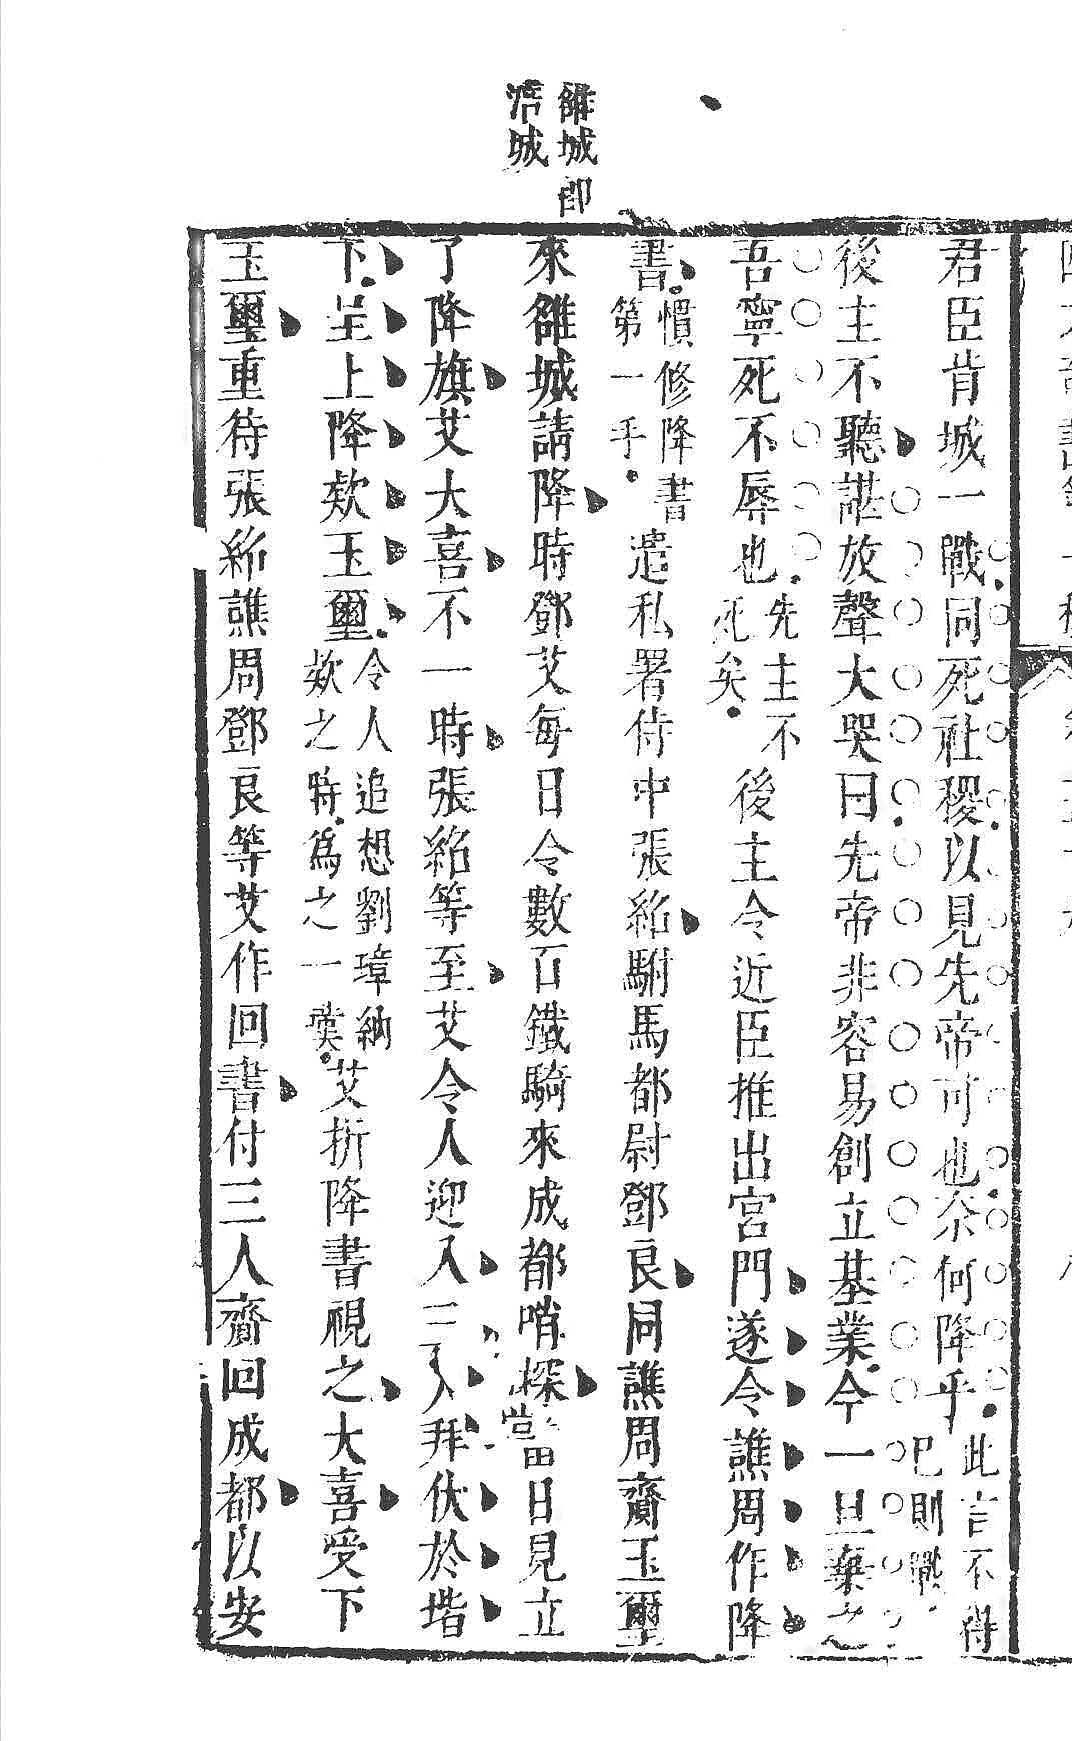 雒城即
涪城
君臣背城一戰同死社稷以見先帝可也奈何降乎此言不得已則戰
後主不聽諶放聲大哭曰先帝非容易創立基業今一旦棄之
吾寧死不辱也先主不死矣後主令近臣推出宮門遂令譙周作降
書慣修降書第一手遣私署侍中張紹駙馬都尉鄧良同譙周齎玉璽
來雒城請降時鄧艾每日令數百鐵騎來成都哨探當日見立
了降旗艾大喜不一時張紹等至艾令人迎入三人拜伏於堦
下呈上降欵玉璽令人追想劉璋納欵之時爲之一歎艾折降書視之大喜受下
玉璽重待張紹譙周鄧良等艾作回書付三人齎回成都以安